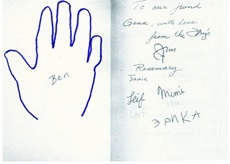 Ben
To our friend
Gena with love
from the
Rosemary
Jamie
Leif Mimi
ЭРИКА